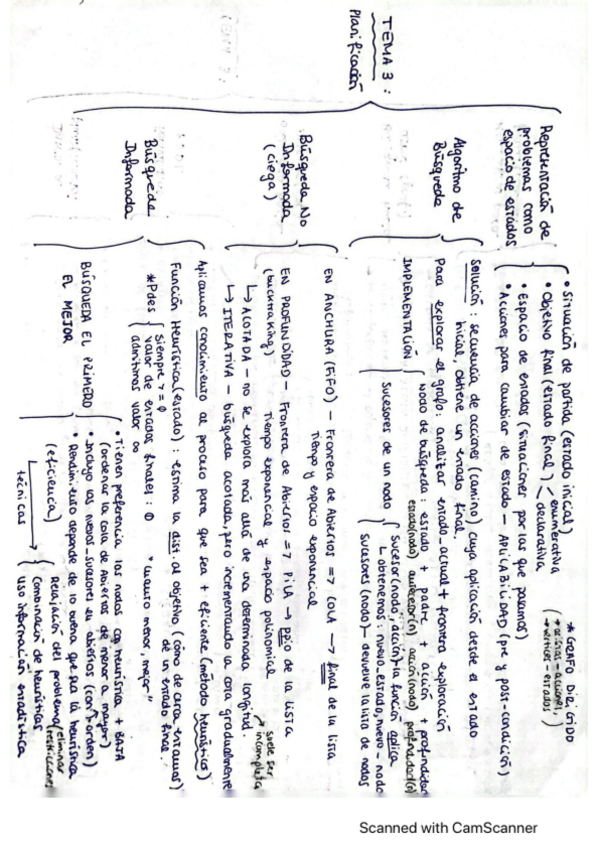 TEMA 3:
Planificación
Representación de
problemas como
espacio de estados
• Situación de partida (estado inicial)
• Objetivo final (estado final) < enumerativa
declarativa
• Espacio de estados (situaciones por las que pasamos)
• Acciones para cambiar de estado — APLICABILIDAD (pre y post-condición)
* GRAFO DIRIGIDO
aristas - acciones,
vértices - estados
Algoritmo de
Búsqueda
Solución: secuencia de acciones (camino) cuya aplicación desde el estado
inicial, obtiene un estado final.
Para explorar el grafo: analizar estado-actual + frontera exploración
IMPLEMENTACIÓN
nodo de búsqueda: estado + padre + acción + profundidad
estado(nodo) antecesor(n) acción(nodo) profundidad(n)
Sucesores de un nodo
Sucesor (nodo, acción) → la función aplica
↳ obtenemos: nuevo-estado, nuevo-nodo
Sucesores (nodo) — devuelve la lista de nodos
Búsqueda No
Informada
(ciega)
EN ANCHURA (FIFO) — Frontera de Abiertos => COLA —> final de la lista
Tiempo y espacio exponencial
EN PROFUNDIDAD — Frontera de Abiertos => PILA —> ppio de la lista
(backtraking) Tiempo exponencial y espacio polinomial
↳ ACOTADA — no se explora más allá de una determinada longitud
→ suele ser
incompleta
↳ ITERATIVA — búsqueda acotada, pero incrementando la cota gradualmente
Búsqueda
Informada
Aplicamos conocimiento al proceso para que sea + eficiente (método heurístico)
Función Heurística (estado): estima la dist. al objetivo (cómo de cerca estamos)
de un estado final.
* Pdes
Siempre ≥ 0
valor de estados finales: 0
admitimos valor ∞
"cuanto menor, mejor"
BÚSQUEDA EL PRIMERO
EL MEJOR
• Tienen preferencia los nodos con heurística + BAJA
(ordenar la cola de Abiertos de menor a mayor)
• Incluyo los nuevos-sucesores en abiertos (con orden)
• Rendimiento depende de lo buena que sea la heurística
(eficiencia)
técnicas
Relajación del problema (eliminar
restricciones
Combinación de heurísticas
Uso información estadística
Scanned with CamScanner